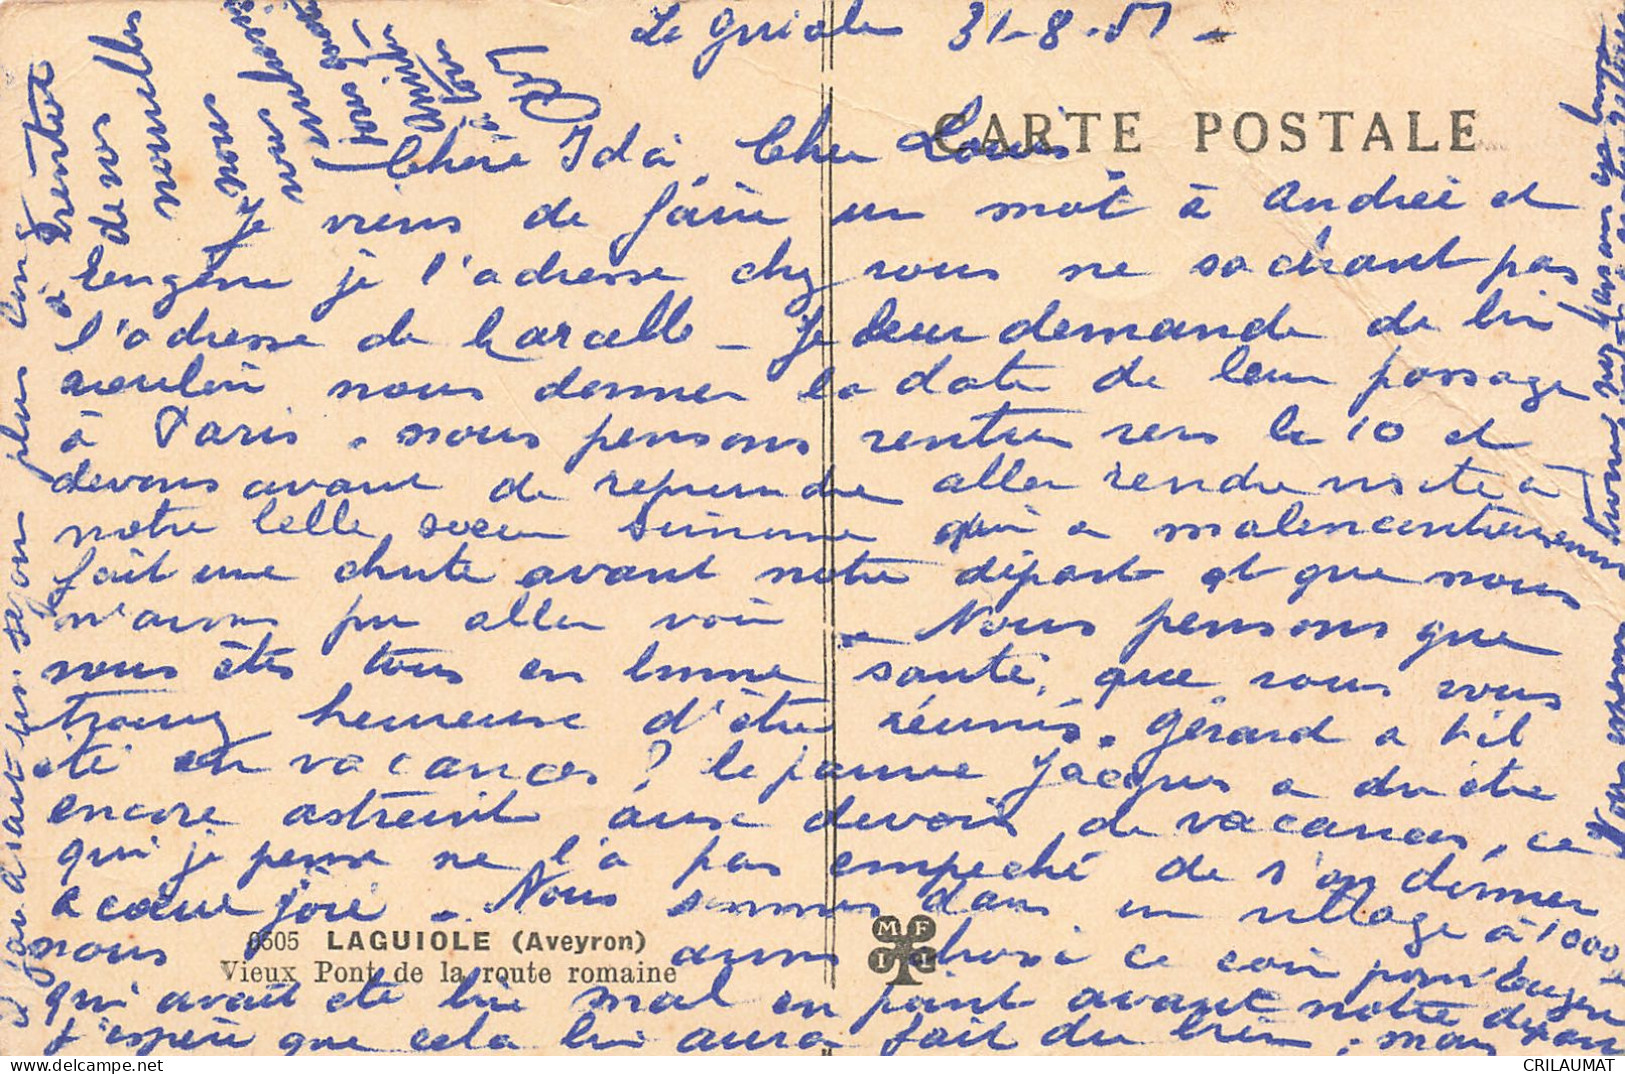 Le Guiole 31-8-51 -
CARTE POSTALE
Chère Ida, Cher Louis
Je viens de faire un mot à Andrée et
Eugène je l'adresse chez vous ne sachant pas
l'adresse de Marcelle - Je leur demande de bien
vouloir nous donner la date de leur passage
à Paris. nous pensons rentrer vers le 10 et
devons avant de reprendre aller rendre visite à
notre belle soeur Simone qui a malencontreusement
fait une chute avant notre départ et que nous
n'avons pu aller voir. Nous pensons que
vous êtes tous en bonne santé, que vous vous
trouvez heureuse d'être réunis. Gérard a t-il
été en vacances? le pauvre Jacques a du être
encore astreint aux devoirs de vacances, ce
qui je pense ne l'a pas empeché de s'en donner
a coeur joie. Nous sommes dans un village à 1000 m
nous avons choisi ce coin pour Eugène
qui avait été bien mal en point avant notre départ
J'espère que cela lui aura fait du bien, mais
6505 LAGUIOLE (Aveyron)
Vieux Pont de la route romaine
M F I L
il faudrait un séjour plus long
à bientôt
de vos
nouvelles
nous
vous
tous
Amitiés
à tous
CRILAUMAT